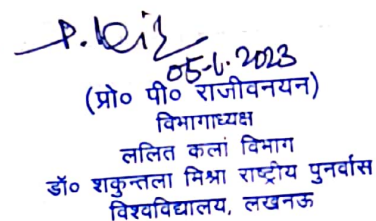 05-6-2023
(प्रो० पी० राजीवनयन)
विभागाध्यक्ष
ललित कलां विभाग
डॉ० शकुन्तला मिश्रा राष्ट्रीय पुनर्वास
विश्वविद्यालय, लखनऊ